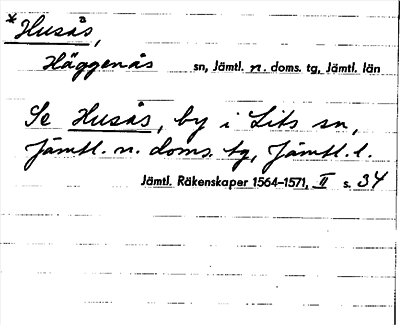 *Husås,
Häggenås sn, Jämtl. n. doms. tg, Jämtl. län
Se Husås, by i Lits sn,
Jämtl. n. doms. tg, Jämtl. l.
Jämtl. Räkenskaper 1564–1571, II s. 34